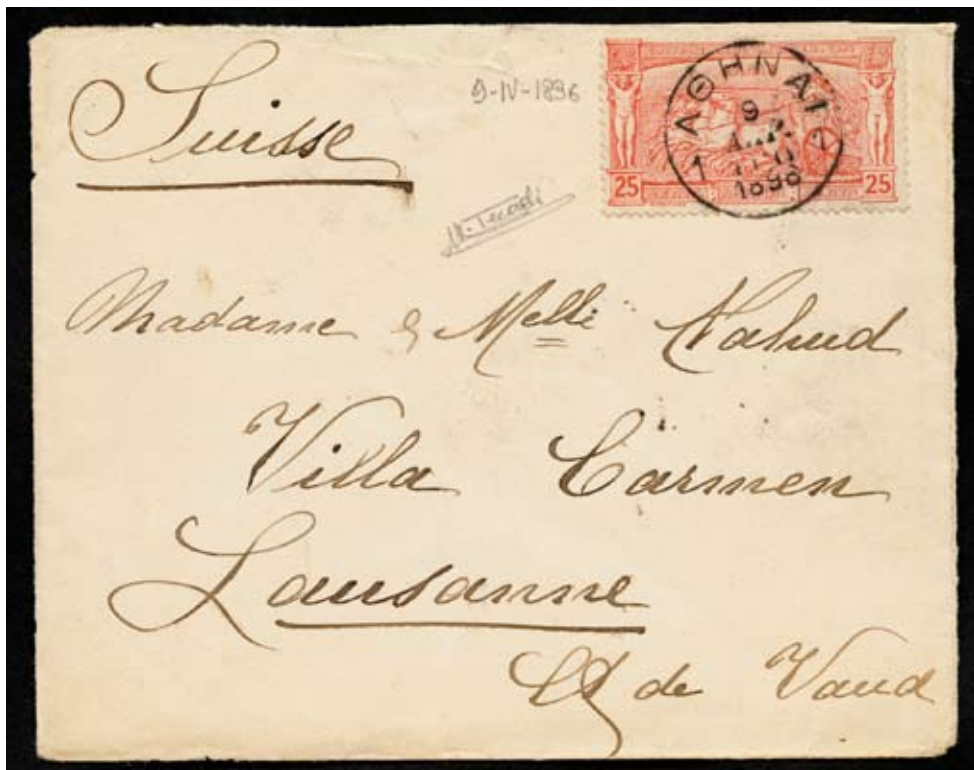 Suisse
9-IV-1896
25 25
ΑΘΗΝΑΙ
1
9
1896
Madame & Melle
Villa Carmen
Lausanne
Ct de Vaud